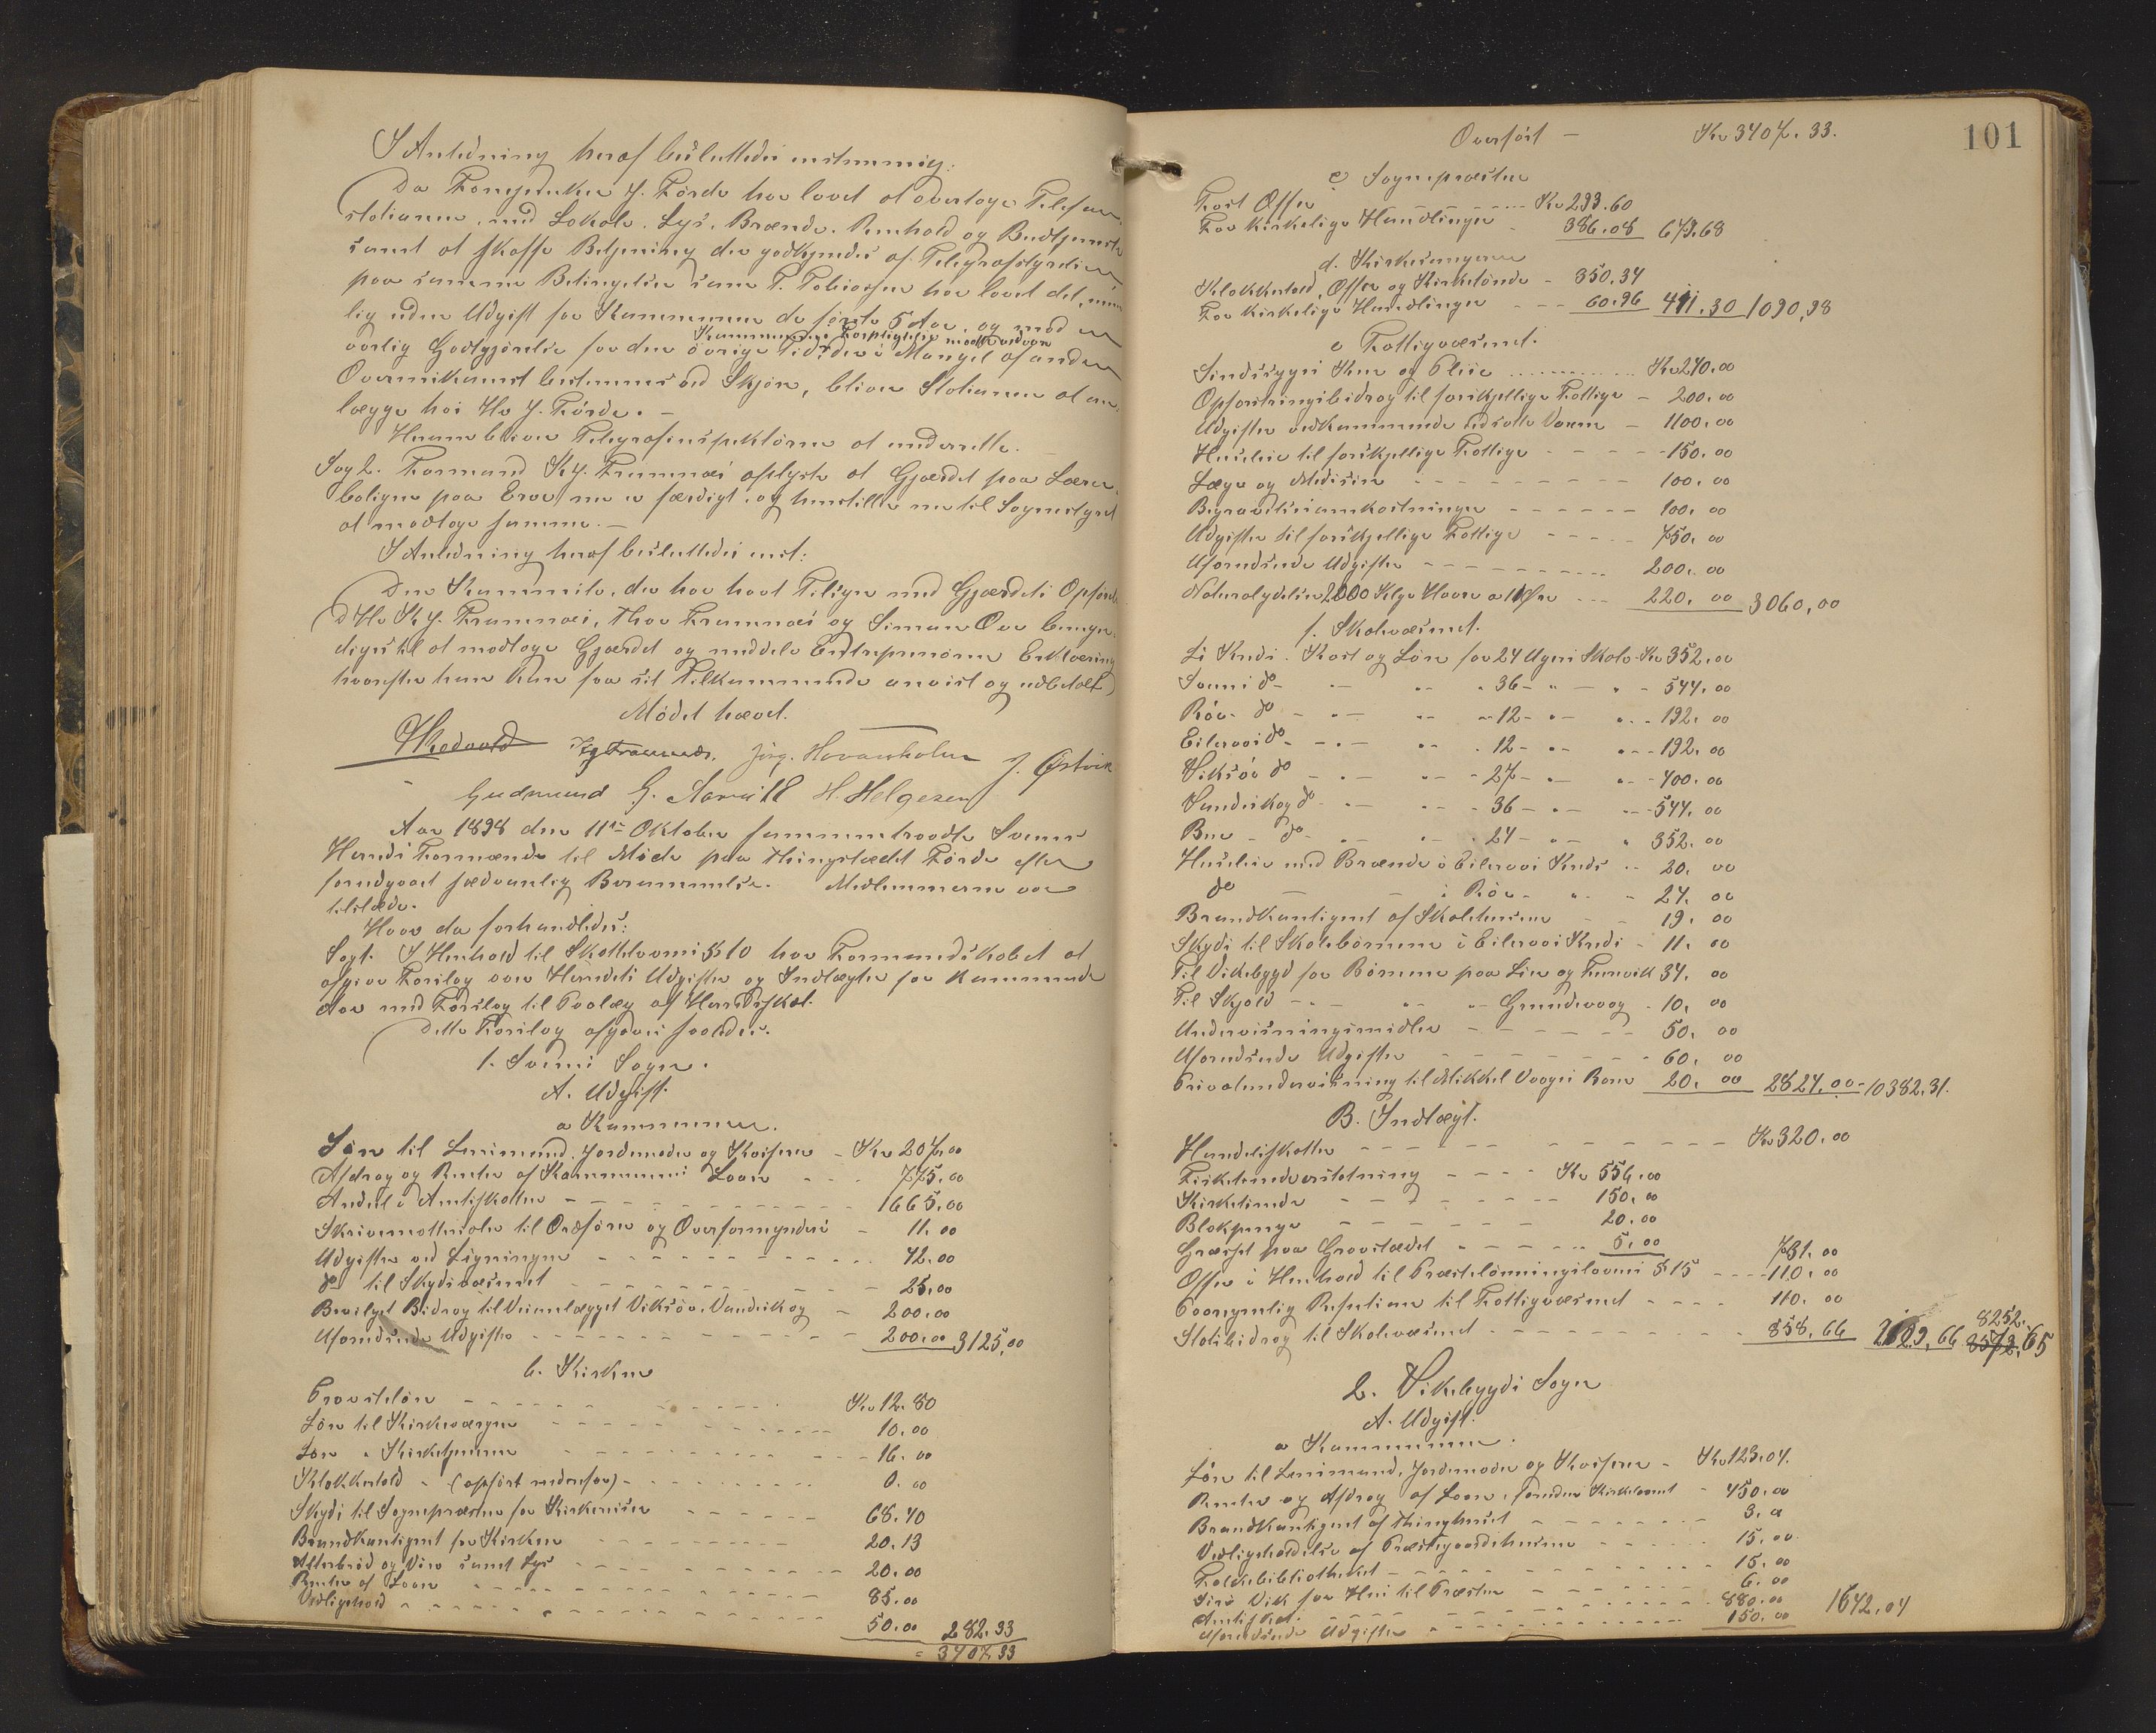 I Anledning heraf besluttedes enstemmig:
Da Forpagter J. Förde har lovet at overtage Telefon-
stationen, med Lokale, Lys, Brænde, Renhold og Budtjeneste
samt at skaffe Betjening der godkjendes af Telegrafstyrelsen
paa samme Betingelser som T. Tobiassen har lovet det, nem-
lig uden Udgift for Kommunen de förste 5 Aar, og mod en
Kommunens Forpligtelse modtverdoen
aarlig Godtgjörelse for den övrige Tid, der i Mangel af anden
Overenskomst bestemmes ved Skjön, bliver Stationen at an-
lægge hos Hr J. Förde. –
Herom bliver Telegrafinspektören at underrette.
Sag 2. Formand K. J. Framnæs oplyste at Gjærdet paa Lærer-
boligen paa Eroe nu er færdigt, og henstiller nu til Sognestyret
at modtage samme. –
I Anledning heraf besluttedes enst:
Den Kommite, der har havt Tilsyn med Gjærdets Opförelse
d'Hr K. J. Framnæs, Thor Framnæs og Simon Oer bemyn-
diges til at modtage Gjærdet og meddele Entreprenören Erklæring
hvorefter han kan faa sit Tilkommende anvist og udbetalt
Mödet hævet.
KJFramnæs. Jörg. Hovanholm J. Østvik
Gudmund G. H. Helgesen
Aar 1898 den 11te Oktober sammentraadte Sveens
Herreds Formænd til Möde paa Thingstedet Förde efter
forudgaaet sædvanlig Berammelse. Medlemmerne var
tilstede.
Hvor da forhandledes:
Sag 1. I Henhold til Skatteloven § 10 har Formandskabet at
afgive Forslag over Herredets Udgifter og Indtægter for kommende
Aar med Forslag til Paalæg af Herredsskat.
Dette Forslag afgaves saaledes.
1. Sveens Sogn.
A. Udgift.
a Kommunen.
Lön til Lensmand, Jordemoder og Kasserer – Kr 207,00
Afdrag og Renter af Kommunens Laan - - - 775,00
Andel i Amtsskatten - - - 1665,00
Skrivematerialer til Ordförer og Overformynderi - 11,00
Udgifter ved Ligningen - - - 42,00
do til Skydsvæsenet - - - 25,00
Bevilget Bidrag til Veianlægget Viksöe-Vandeskog - 200,00
Uforudseede Udgifter - - - 200,00 3125,00
b. Kirken
Provstelön - - - Kr 12.80
Lön til Kirkeværgen - - - 10.00
Lön " Kirketjeneren - - - 16.00
Klokkertold - (opfört nedenfor) - - - 0.00
Skyds til Sognepræsten for Kirkereiser - - - 68.40
Brandkontigent for Kirken - - - 20.13
Alterbröd og Vin samt Lys - - - 20.00
Renter af Laan - - - 85.00
Vedligehold - - - 50.00 282.33
= 3407.33
101
Overfört – Kr 3407.33.
c Sognepræsten
Fast Offer - - - Kr 293.60
For kirkelige Handlinger - 386.08 679.68
d. Kirkesangeren
Klokkertold, Offer og Kirketiende - 350.34
For kirkelige Handlinger - - - 60.96 411.30 1090,98
e Fattigvæsenet.
Sindssyges Kur og Pleie ......... Kr 240.00
Opfostringsbidrag til forskjellige Fattige - 200.00
Udgifter vedkommende udsatte Voxne - 1100.00
Husleie til forskjellige Fattige - - - 150.00
Læge og Medisin - - - 100.00
Begravelsesomkostninger - - - 100.00
Udgifter til forskjellige Fattige - - - 750.00
Uforudseede Udgifter - - - 200.00
Naturalydelser 2000 Kilgr Havre a 11 Öre - - - 220.00 3060,00
f. Skolevæsenet.
Li Kreds. Kost og Lön for 24 Ugers Skole - Kr 352.00
Sveens do - - " 36 - " - - 544.00
Röv - do - - " 12 - " - - 192.00
Eileraas do - - " 12 - " - - 192.00
Viksöe do - - " 27 - " - - 400.00
Vandeskog do - - " 36 - " - - 544.00
Bue - do - - " 24 - " - 352.00
Husleie med Brænde i Eileraas Kreds - - 20.00
do - - i Röv - " - 24.00
Brandkontigent af Skolehusene - - 19.00
Skyds til Skolebörnene i Eileraas Kreds - 11.00
Til Vikebygd for Börnene paa Lier og Tveuvik 34.00
Til Skjold - " - " - Grindevaag - 10.00
Undervisningsmidler - - - 50.00
Uforudseede Udgifter - - - 60.00
Privatundervisning til Mikkel Vaages Barn 20.00 2824.00 - 10382.31.
B. Indtægt.
Handelsskatter - - - Kr 320.00
Fisketiendeerstatning - - - Kr 556.00
Kirketiende - - - 150.00
Blokpenge - - - 20.00
Græsset paa Gravstedet - - - 5.00 731.00
Offer i Henhold til Præstelönningslovens § 15 - - - 110.00
Paaregnelig Refusion til Fattigvæsenet - - - 110.00
Statsbidrag til Skolevæsenet - - - 858.66 2129.66 8252.65
2. Vikebygds Sogn
A. Udgift.
a Kommunen.
Lön til Lensmand, Jordemoder og Kasserer - Kr 123.04.
Renter og Afdrag af Laan, foruden Kirkelaanet - 450.00
Brandkontigent af Thinghuset - - - 3.00
Vedligeholdelse af Præstegaardshusene - - - 15.00
Folkebibliotheket - - - 15.00
Lars Vik for Hei til Præsten - - - 6.00
Amtsskat - - - 880.00
Uforudseede Udgifter - - - 150.00 1642.04